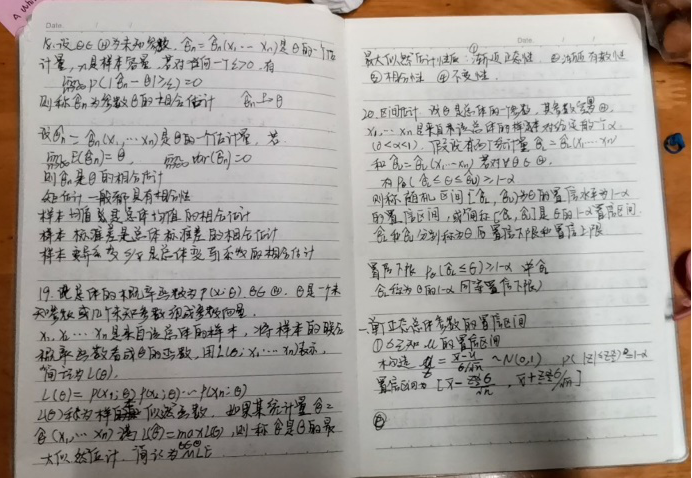 18.设θ∈Θ为未知参数，θ̂n=θ̂n(x₁,…xn)是θ的一个估
计量，n是样本容量，若对任何一个ε>0，有
lim n→∞ P(|θ̂n-θ|≥ε)=0
则称θ̂n为参数θ的相合估计 θ̂n →P θ
设θ̂n=θ̂n(x₁,…xn)是θ的一个估计量，若
lim n→∞ E(θ̂n)=θ, lim n→∞ Var(θ̂n)=0
则θ̂n是θ的相合估计
矩估计一般都具有相合性
样本均值是总体均值的相合估计
样本标准差是总体标准差的相合估计
样本变异系数s/x̄是总体变异系数的相合估计
19.设总体的概率函数为P(x;θ),θ∈Θ，θ是一个未
知参数或几个未知参数组成参数向量,
x₁,x₂…xn是来自该总体的样本，将样本的联合
概率函数看成θ的函数，用L(θ;x₁,…xn)表示,
简记为L(θ),
L(θ)=p(x₁;θ)p(x₂;θ)…p(xn;θ)
L(θ)称为样本的似然函数，如果某统计量θ̂=
θ̂(x₁,…xn)满L(θ̂)=max L(θ),则称θ̂是θ的最
θ∈Θ
大似然估计，简记为MLE
最大似然估计性质：①渐近正态性 ②渐近有效性
③相合性 ④不变性.
20.区间估计 设θ是总体的一个参数，其参数空间Θ,
x₁,…xn是来自该总体的样本对给定的一个α
(0<α<1)，假设有两个统计量θ̂L=θ̂L(x₁,…xn)
和θ̂U=θ̂U(x₁…xn)若对∀θ∈Θ,
有Pθ(θ̂L≤θ≤θ̂U)≥1-α
则称随机区间[θ̂L,θ̂U]为θ的置信水平为1-α
的置信区间，或简称[θ̂L,θ̂U]是θ的1-α置信区间.
θ̂L和θ̂U分别称为θ的置信下限和置信上限
置信下限 Pθ(θ̂L≤θ)≥1-α 单侧
θ̂L称为θ的1-α同等置信下限)
一、单个正态总体参数的置信区间
①σ已知 μ的置信区间
x̄-μ/σ/√n ~N(0,1) P(|z|≤z)≥1-α
置信区间为[x̄-zσ/√n , x̄+zσ/√n]
②